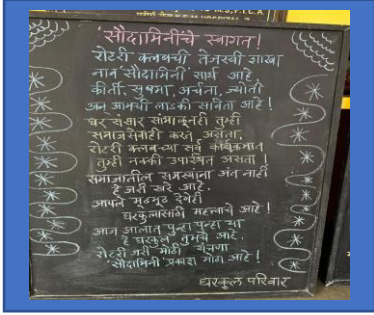 सौदामिनींचे स्वागत!
रोटरी क्लबची तेजस्वी शाखा
नाम सौदामिनी सार्थ आहे
कीर्ती, सुषमा, अर्चना, ज्योती
अन् आमची लाडकी सविता आहे!
घर संसार सांभाळूनही तुम्ही
समाजसेवाही करत असता,
रोटरी क्लबच्या सर्व कार्यक्रमात
तुम्ही नक्की उपस्थित असता!
समाजातील समस्यांना अंत नाही
हे जरी खरे आहे.
आपले मूठमूठ देणेही
घरकुलासाठी महत्त्वाचे आहे!
आज आलात पुन्हा पुन्हा या
हे घरकुल तुमचे आहे.
रोटरी जरी मोठी
सौदामिनी प्रकाश मोठा आहे!
घरकुल परिवार